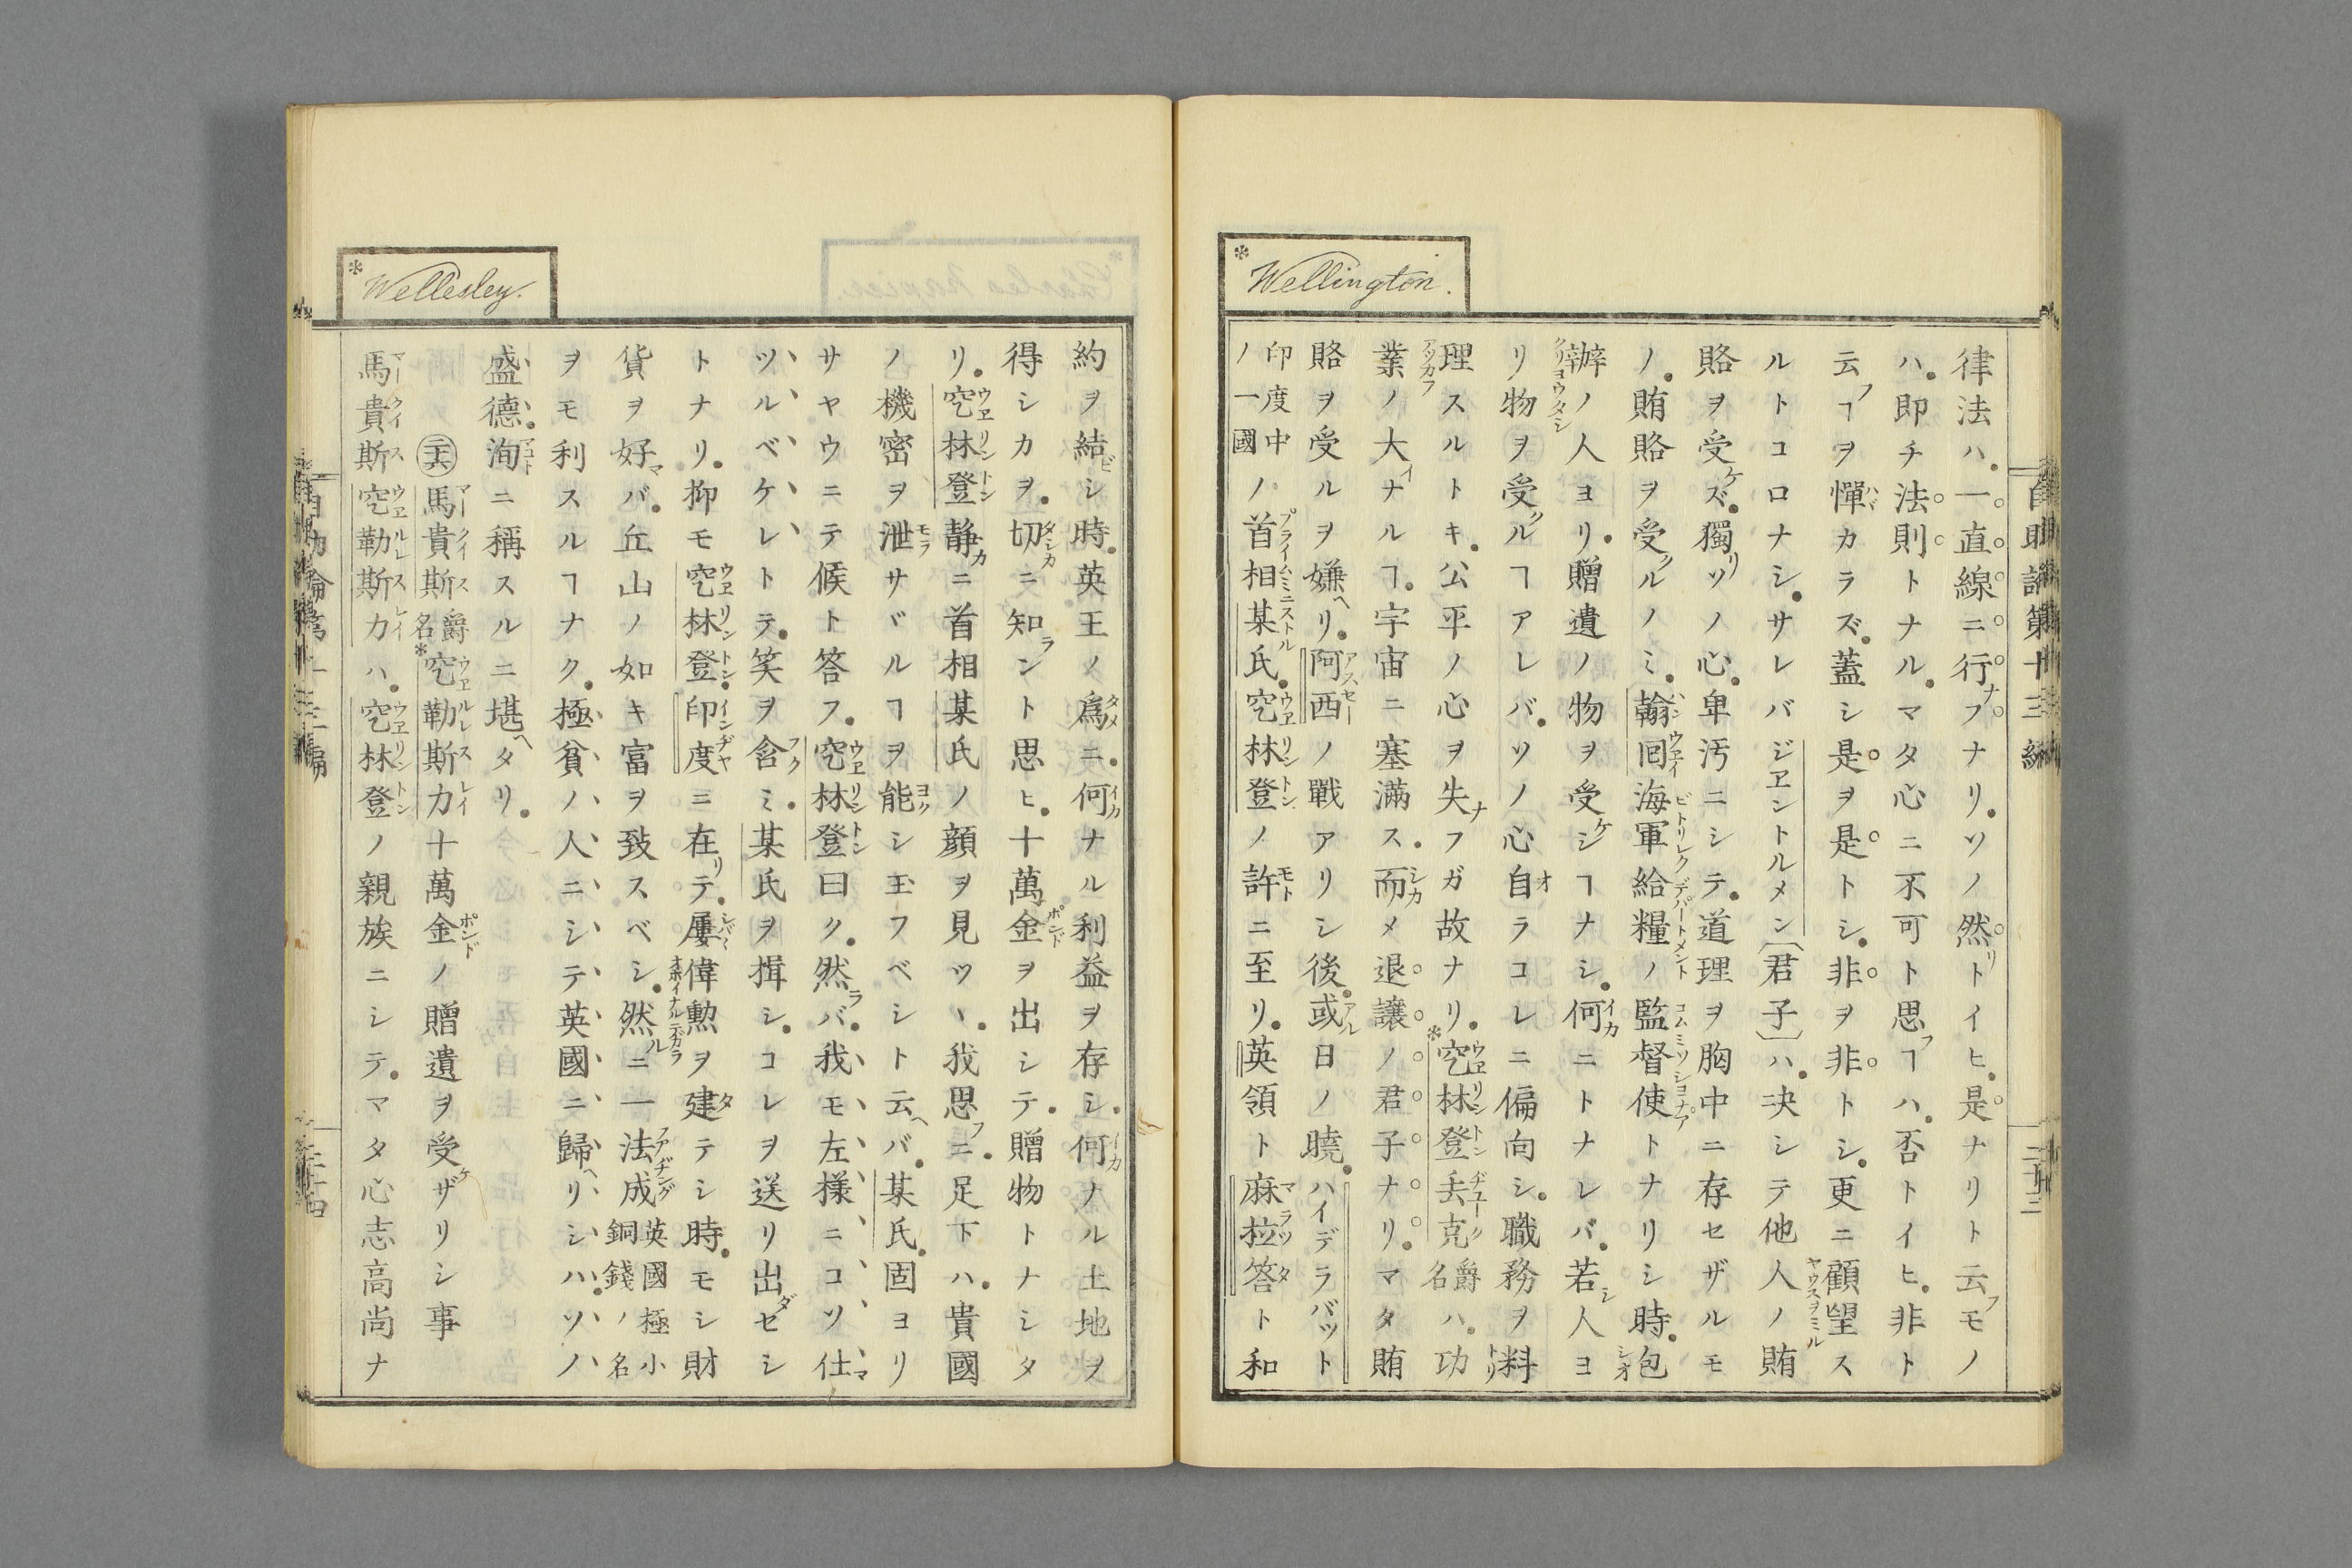 Wellington.
律法ハ一直線ニ行フナリソノ然リトイヒ是ナリト云フモノ
ハ即チ法則トナルマタ心ニ不可ト思フヿハ否トイヒ非ト
云フヿヲ憚カラズ蓋シ是ヲ是トシ非ヲ非トシ更ニ顧望ス
ルトコロナシサレバジヱントルメン〔君子〕ハ决シテ他人ノ賄
賂ヲ受ケズ獨リソノ心卑汚ニシテ道理ヲ胸中ニ存セザルモ
ノ賄賂ヲ受クルノミ翰回海軍給糧ノ監督使トナリシ時包
辦ノ人ヨリ贈遺ノ物ヲ受ケシヿナシ何ニトナレバ若シ人ヨ
リ物ヲ受クルヿアレバソノ心自ラコレニ偏向シ職務ヲ料
理スルトキ公平ノ心ヲ失ナフガ故ナリ*空林登丢克爵名ハ功
業ノ大イナルヿ宇宙ニ塞滿ス而メ退讓ノ君子ナリマタ賄
賂ヲ受ルヲ嫌ヘリ阿西ノ戰アリシ後或日ノ曉ハイデラバット
印度中ノ一國ノ首相某氏空林登ノ許ニ至リ英領ト麻拉答ト和
Wellesley.
約ヲ結ビシ時英王ノ爲ニ何ナル利益ヲ存シ何ナル土地ヲ
得シカヲ切ニ知ラント思ヒ十萬金ヲ出シテ贈物トナシタ
リ空林登静カニ首相某氏ノ顔ヲ見ツヽ我思フニ足下ハ貴國
ノ機密ヲ泄サヾルヿヲ能シ玉フベシト云ヘバ某氏固ヨリ
サヤウニテ候ト答フ空林登曰ク然ラバ我モ左樣ニコソ仕マ
ツルベケレトテ笑ヲ含ミ某氏ヲ揖シコレヲ送リ出ダセシ
トナリ抑モ空林登印度ニ在リテ屢偉勲ヲ建テシ時モシ財
貨ヲ好マバ丘山ノ如キ富ヲ致スベシ然ルニ一法成英國極小銅錢ノ名
ヲモ利スルヿナク極貧ノ人ニシテ英國ニ歸ヘリシハソノ
盛德洵ニ稱スルニ堪ヘタリ
馬貴斯爵名*空勒斯力十萬金ノ贈遺ヲ受ケザリシ事
馬貴斯空勒斯力ハ空林登ノ親族ニシテマタ心志高尚ナ